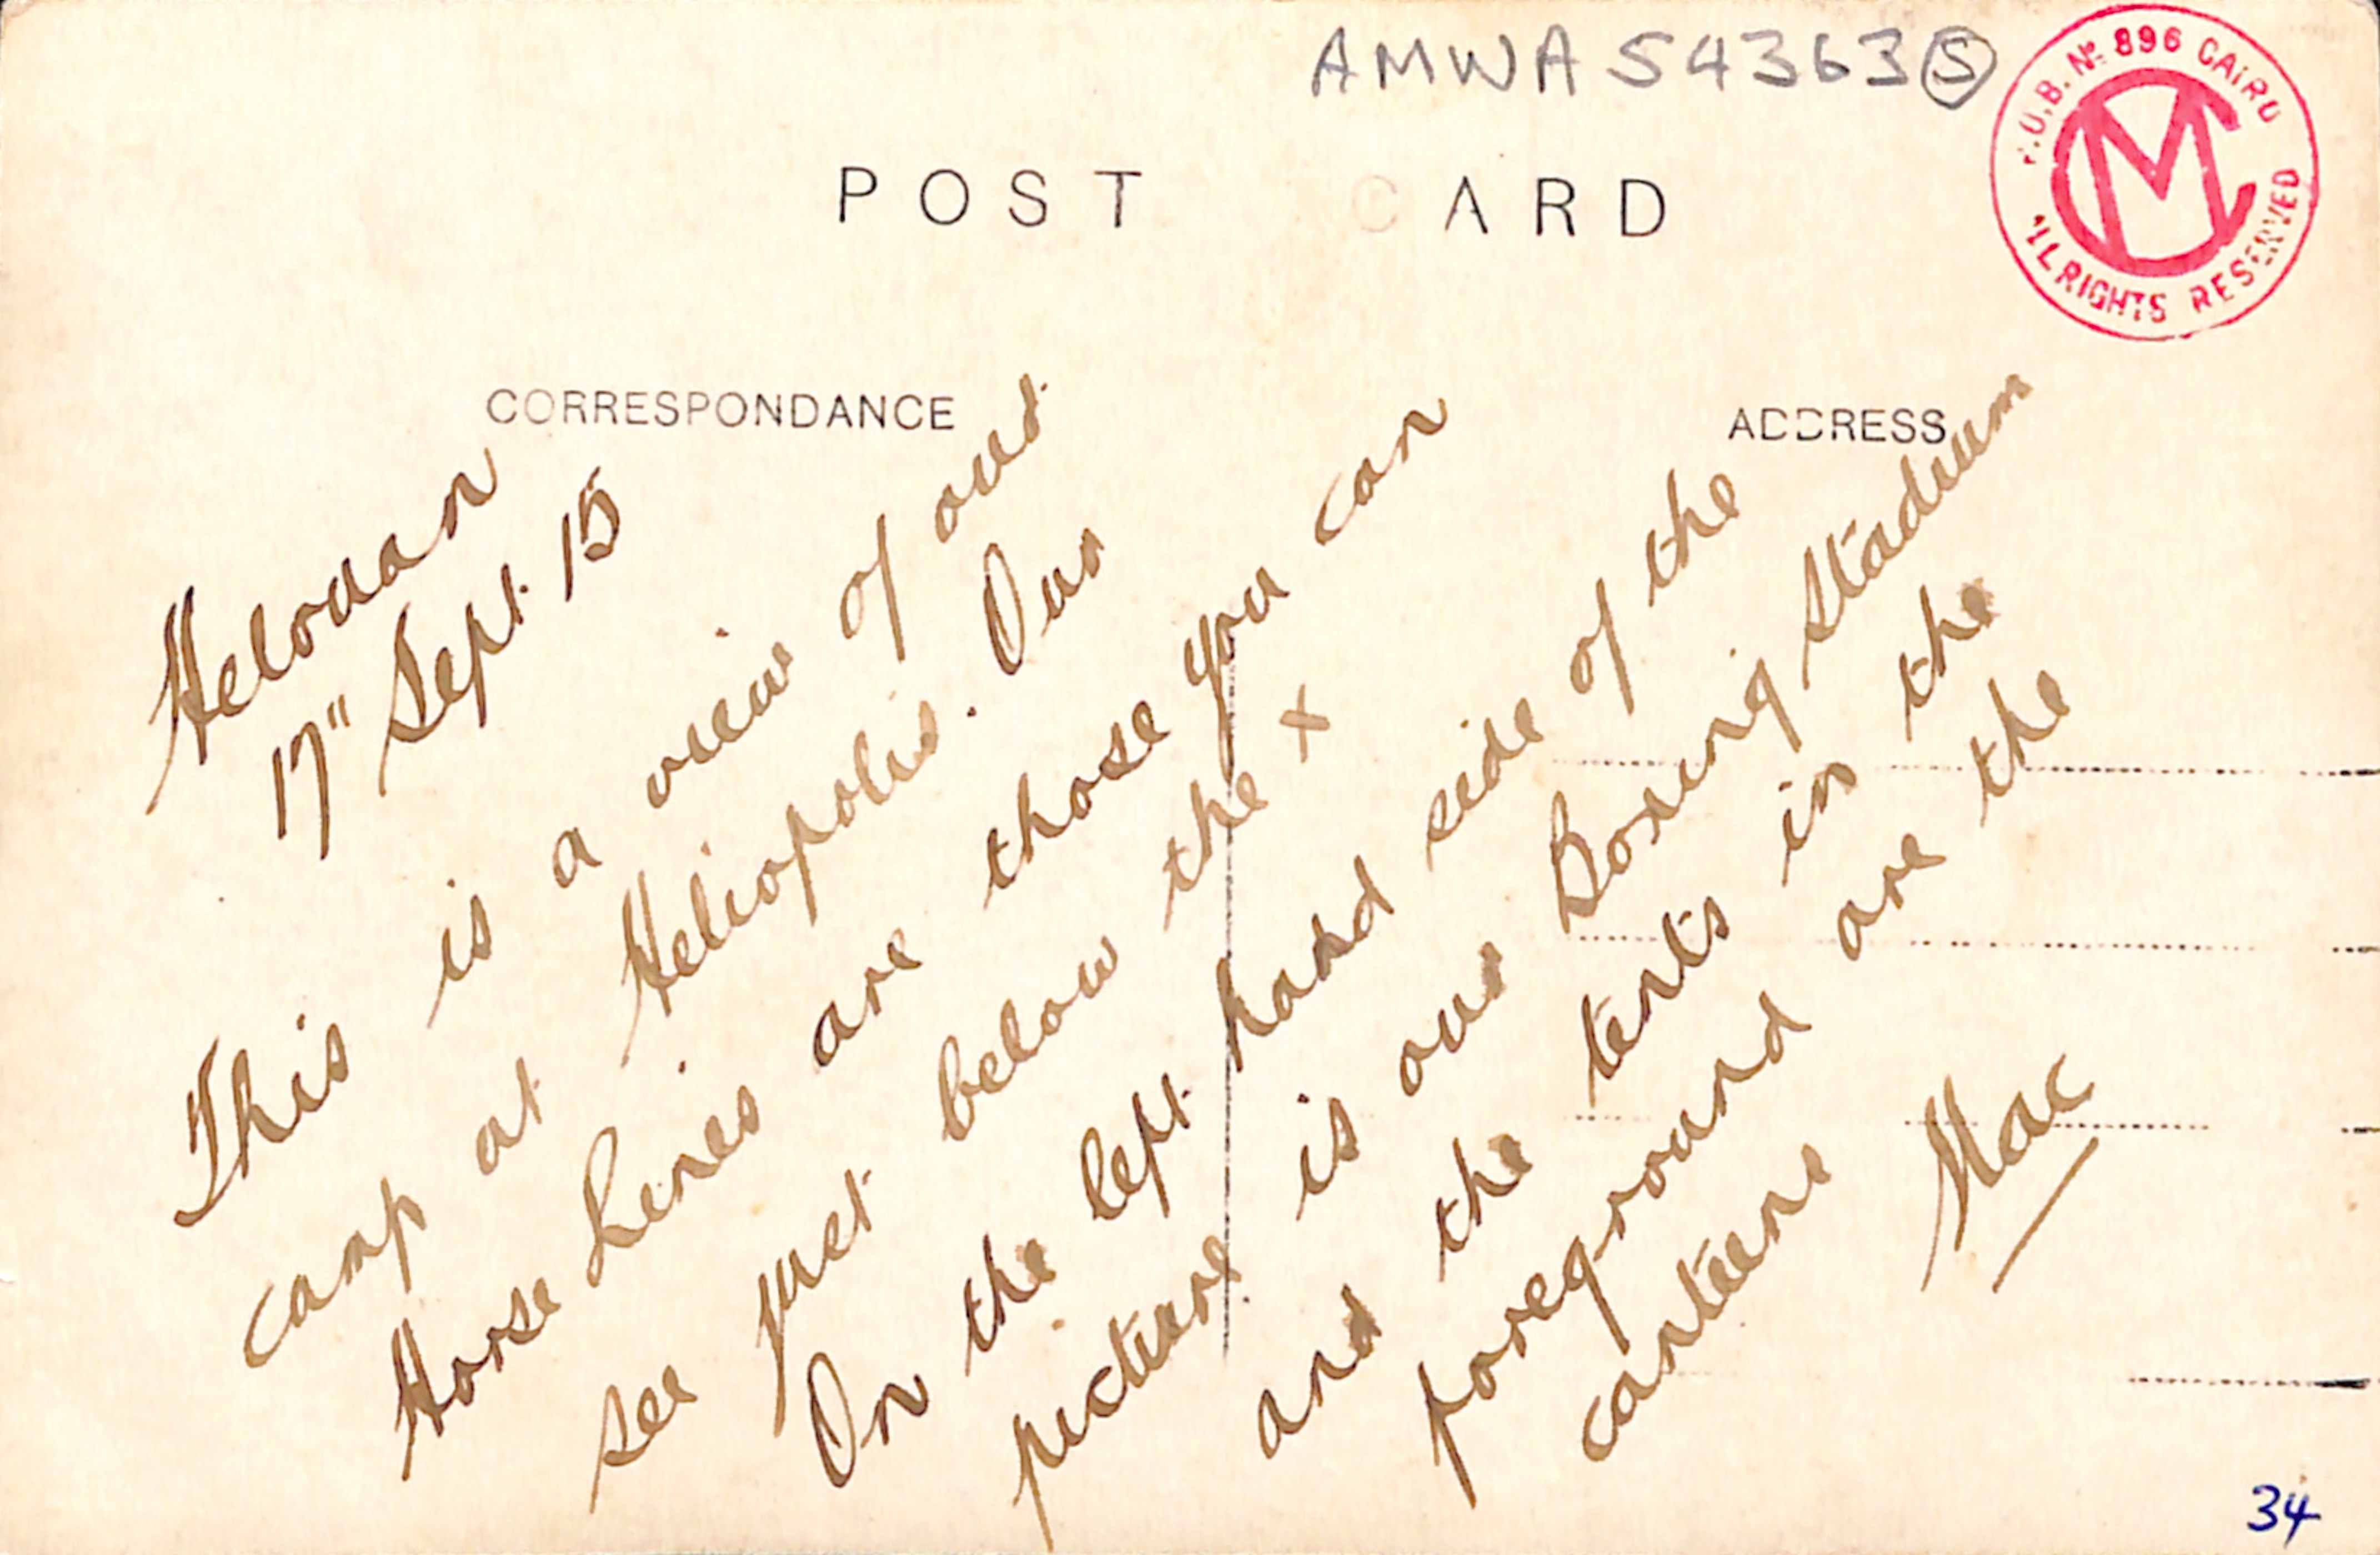 AMWA 54363 S
P.U.B. Nº 896 CAIRO
MC
ALL RIGHTS RESERVED
POST CARD
CORRESPONDANCE
ADDRESS
Helouan
17" Sept. 15
This is a view of our
camp at Heliopolis. Our
Horse Lines are those you can
see just below the +
On the left hand side of the
picture is our Boxing Stadium
and the tents in the
foreground are the
canteens
Mac
34